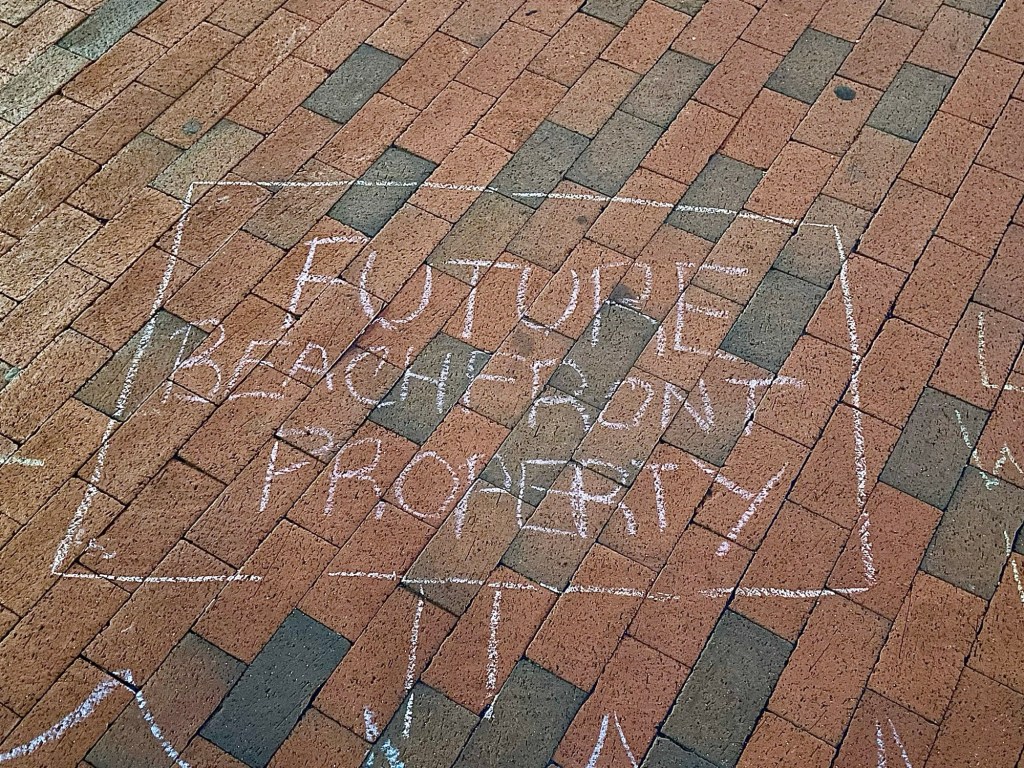 FUTURE
BEACHFRONT
PROPERTY